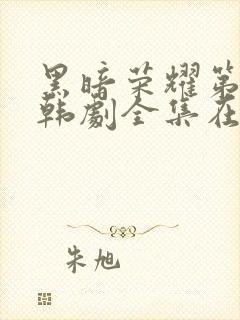 黑暗荣耀第
韩剧全集在
朱旭